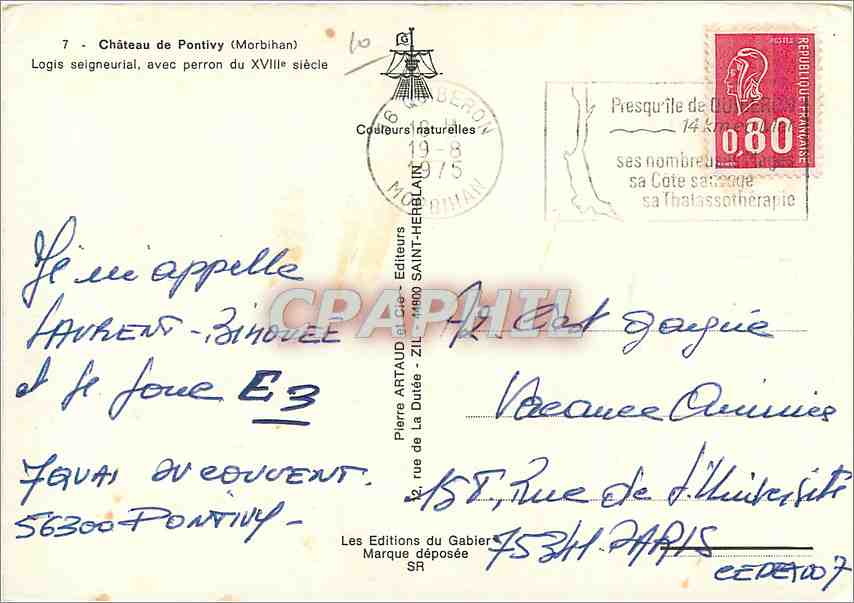 7 - Château de Pontivy (Morbihan)
Logis seigneurial, avec perron du XVIIIe siècle
10
G
Couleurs naturelles
QUIBERON
19-8
1975
MORBIHAN
Presqu'île de QUIBERON
14 km
ses nombreuses plages
sa Côte sauvage
sa Thalassothérapie
POSTES
REPUBLIQUE FRANCAISE
0,80
Je m'appelle
LAURENT-BIHOUEE
et je joue E3
7 QUAI DU COUVENT.
56300 PONTIVY-
Pierre ARTAUD et Cie - Editeurs
12, rue de La Dutée - ZIL - 44800 SAINT-HERBLAIN
CPAPHIL
A2. C'est gagné
Vacance Animés
158, Rue de l'Université
75341. PARIS
CEDEX 07
Les Editions du Gabier
Marque déposée
SR